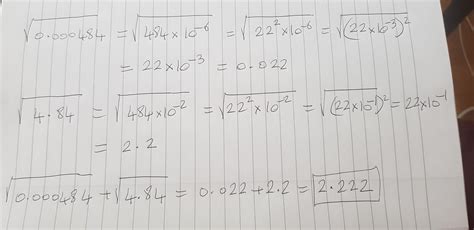 √0.000484 = √484×10⁻⁶ = √22²×10⁻⁶ = √(22×10⁻³)²
= 22×10⁻³ = 0.022
√4.84 = √484×10⁻² = √22²×10⁻² = √(22×10⁻¹)² = 22×10⁻¹
= 2.2
√0.000484 + √4.84 = 0.022+2.2 = 2.222